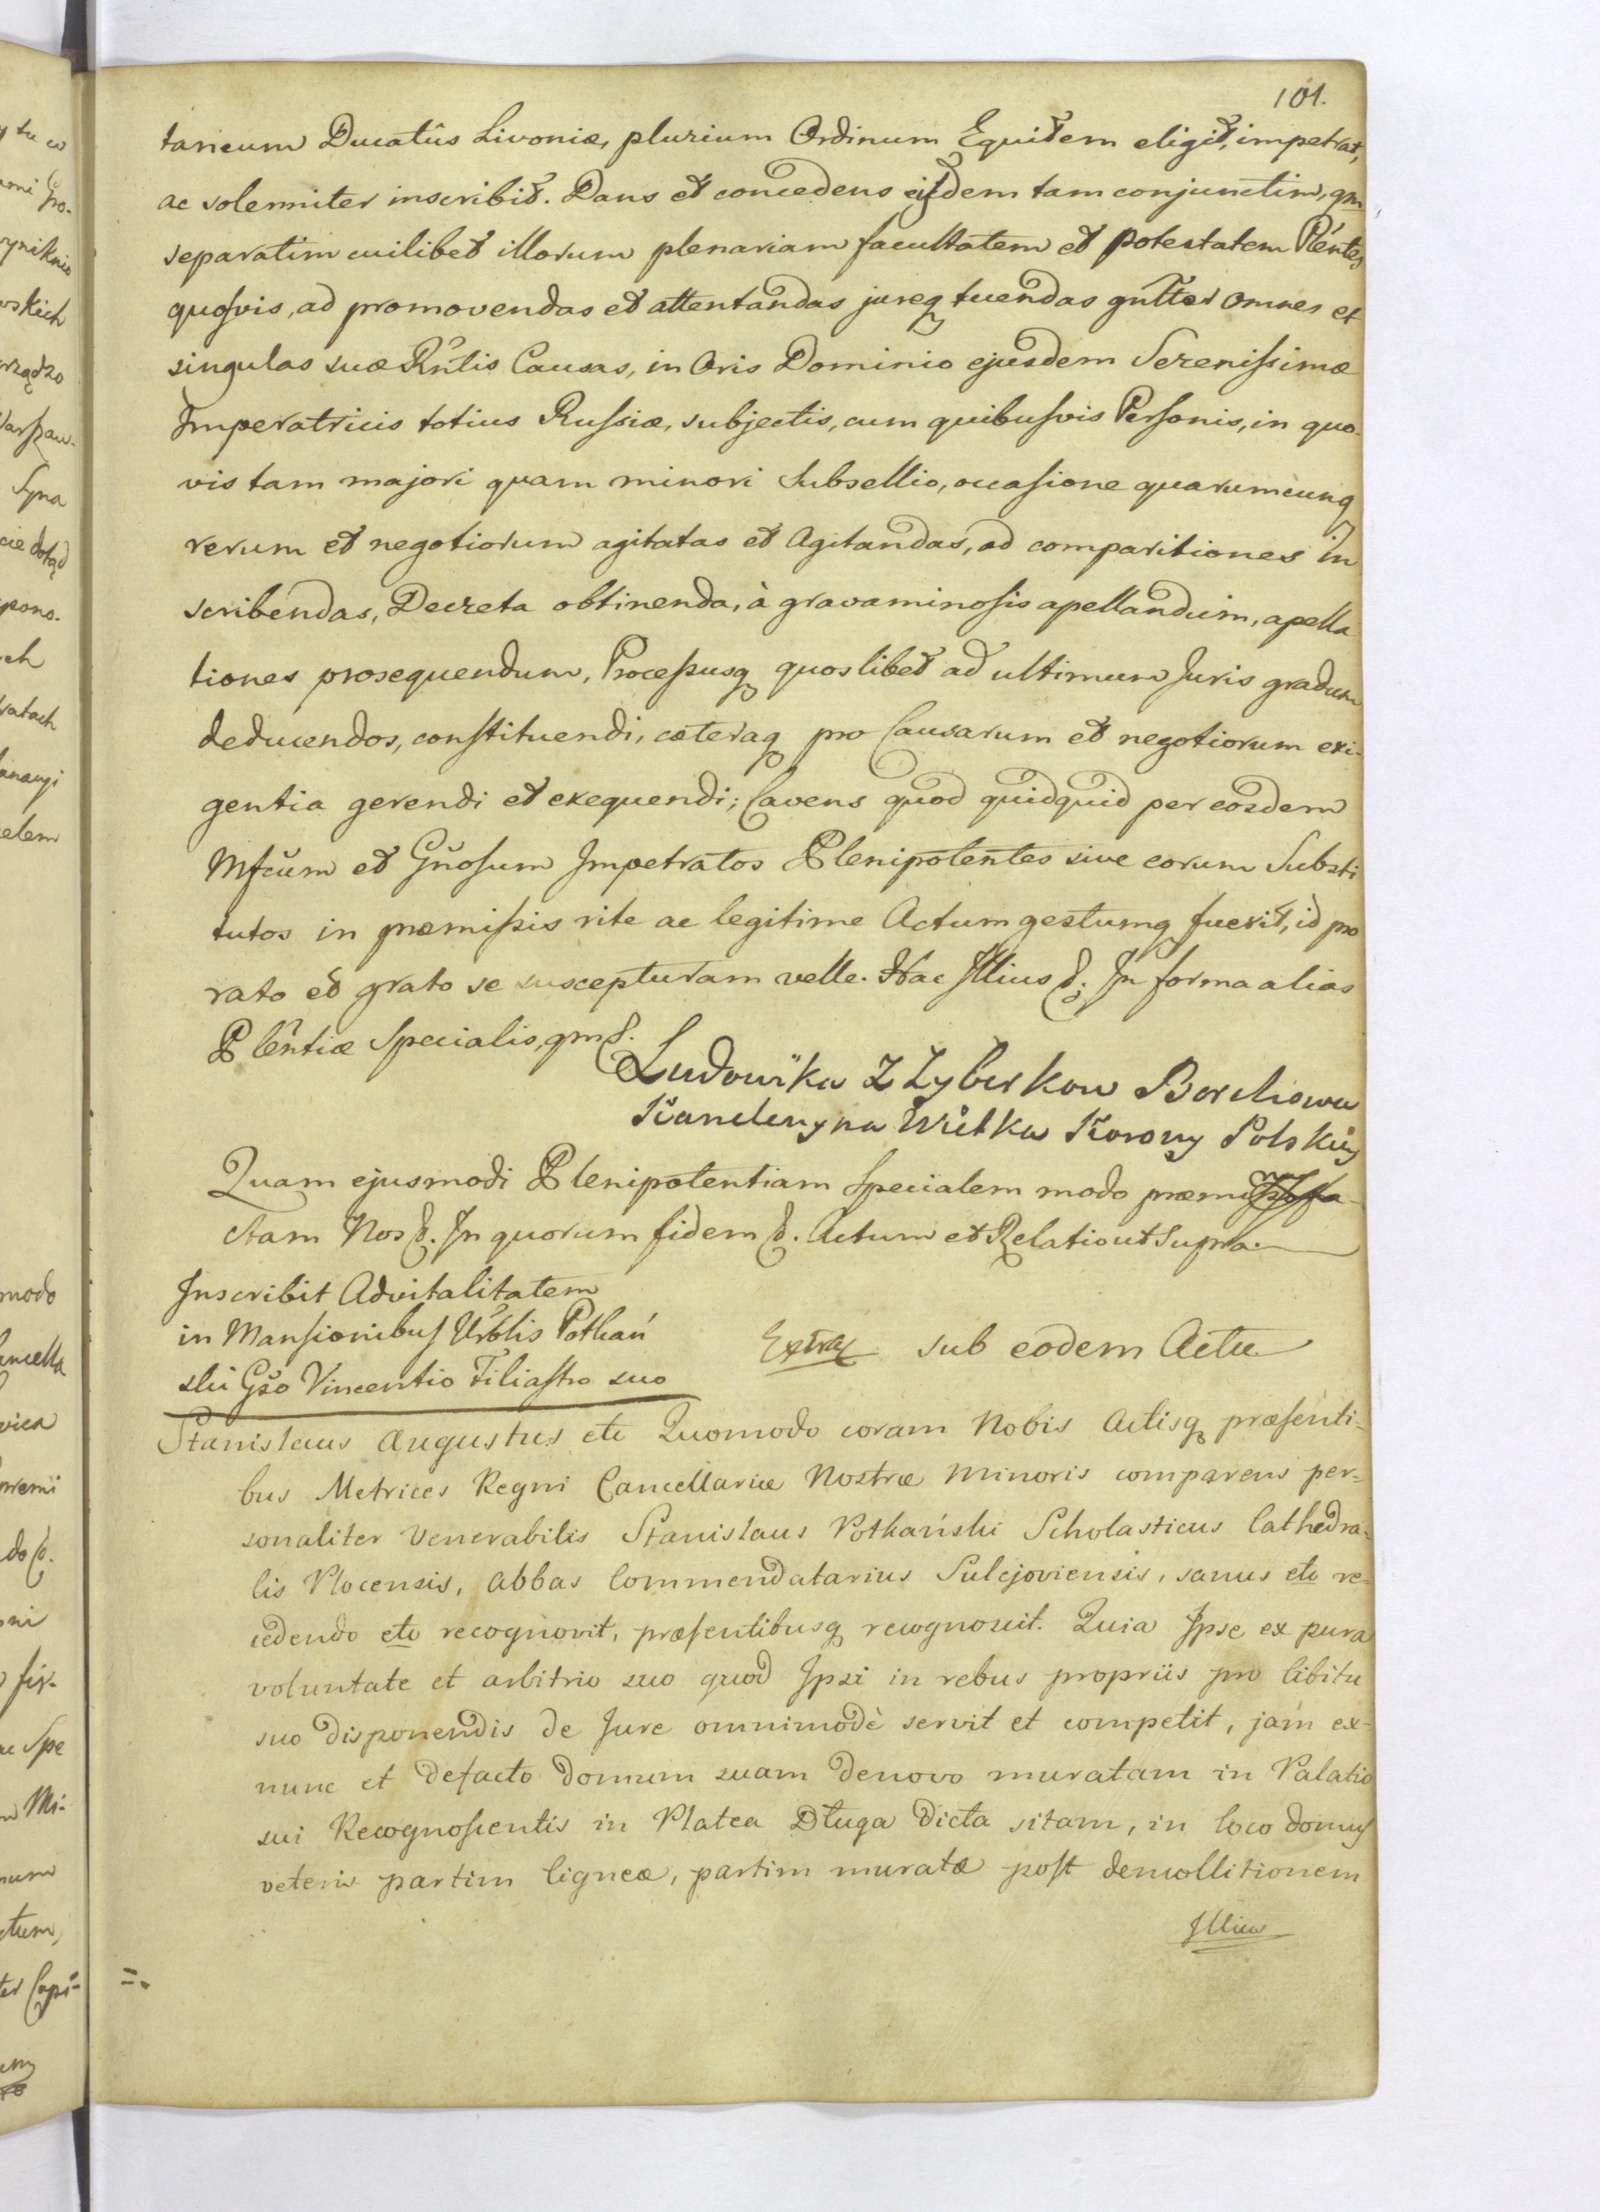 101.
taneum Ducatûs Livoniæ, plurium Ordinum Equitem eligit, impetrat,
ac solemniter inscribit. Dans et concedens eisdem tam conjunctim, qm
separatim cuilibet illorum plenariam facultatem et potestatem Plentes
quosvis, ad promovendas et attentandas jureq tuendas gnltter omnes et
singulas suæ Rntis Causas, in Oris Dominio ejusdem Serenissimæ
Imperatricis totius Russiæ, subjectis, cum quibusvis Personis, in quo-
vis tam majori quam minori Subsellio, occasione quarumcunq
rerum et negotiorum agitatas et Agitandas, ad comparitiones in
scribendas, Decreta obtinenda, à gravaminosis apellandum, apella
tiones prosequendum, Processusq quoslibet ad ultimum Juris gradum
deducendos, constituendi, cæteraq pro Causarum et negotiorum exi-
gentia gerendi et exequendi; Cavens quod quidquid per eosdem
Mfcum et Gnosum Impetratos Plenipotentes sive eorum Substi
tutos in præmissis rite ac legitime Actum gestumq fuerit, id pro
rato et grato se suscepturam velle. Hac Illius &. In forma alias
Plentiæ Specialis, qm &.
Ludowika Z Zyberkow Borchowa
Kanclerzyna Wielka Korony Polskiey
Quam ejusmodi Plenipotentiam Specialem modo præmisso fa-
ctam Nos &. In quorum fidem &. Actum et Relatio ut Supra.
Inscribit Advitalitatem
in Mansionibus Urblis Potkań
ski Gso Vincentio Filiastro suo
Extrax sub eodem Actu
Stanislaus Augustus etc Quomodo coram Nobis Actisq præsenti-
bus Metrices Regni Cancellariæ Nostræ Minoris comparens per-
sonaliter Venerabilis Stanislaus Potkański Scholasticus Cathedra-
lis Plocensis, Abbas Commendatarius Sulejoviensis, sanus etc re-
cedendo etc recognovit, præsentibusq recognoscit. Quia Ipse ex pura
voluntate et arbitrio suo quod Ipsi in rebus propriis pro libitu
suo disponendis de Jure omnimodè servit et competit, jam ex-
nunc et defacto domum suam denovo muratam in Palatio
sui Recognoscentis in Platea Długa dicta sitam, in loco domus
veteris partim ligneæ, partim muratæ post demollitionem
Illius
=.